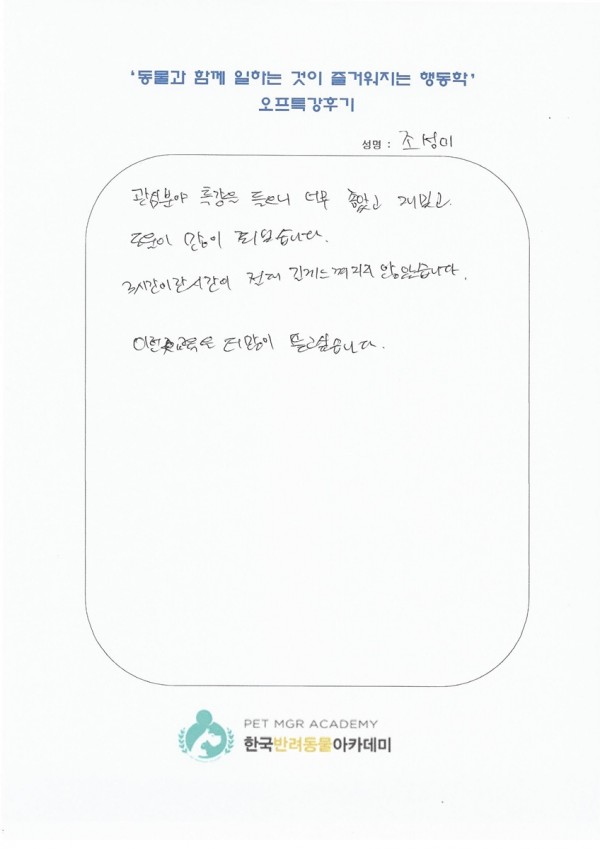 '동물과 함께 일하는 것이 즐거워지는 행동학'
오프특강후기
성명 : 조성미
관심분야 특강을 들으니 너무 좋았고 재밌고
도움이 많이 되었습니다.
3시간이란 시간이 전혀 길게느껴지지 않았습니다.
이런 교육을 더많이 듣고싶습니다.
PET MGR ACADEMY
한국반려동물아카데미